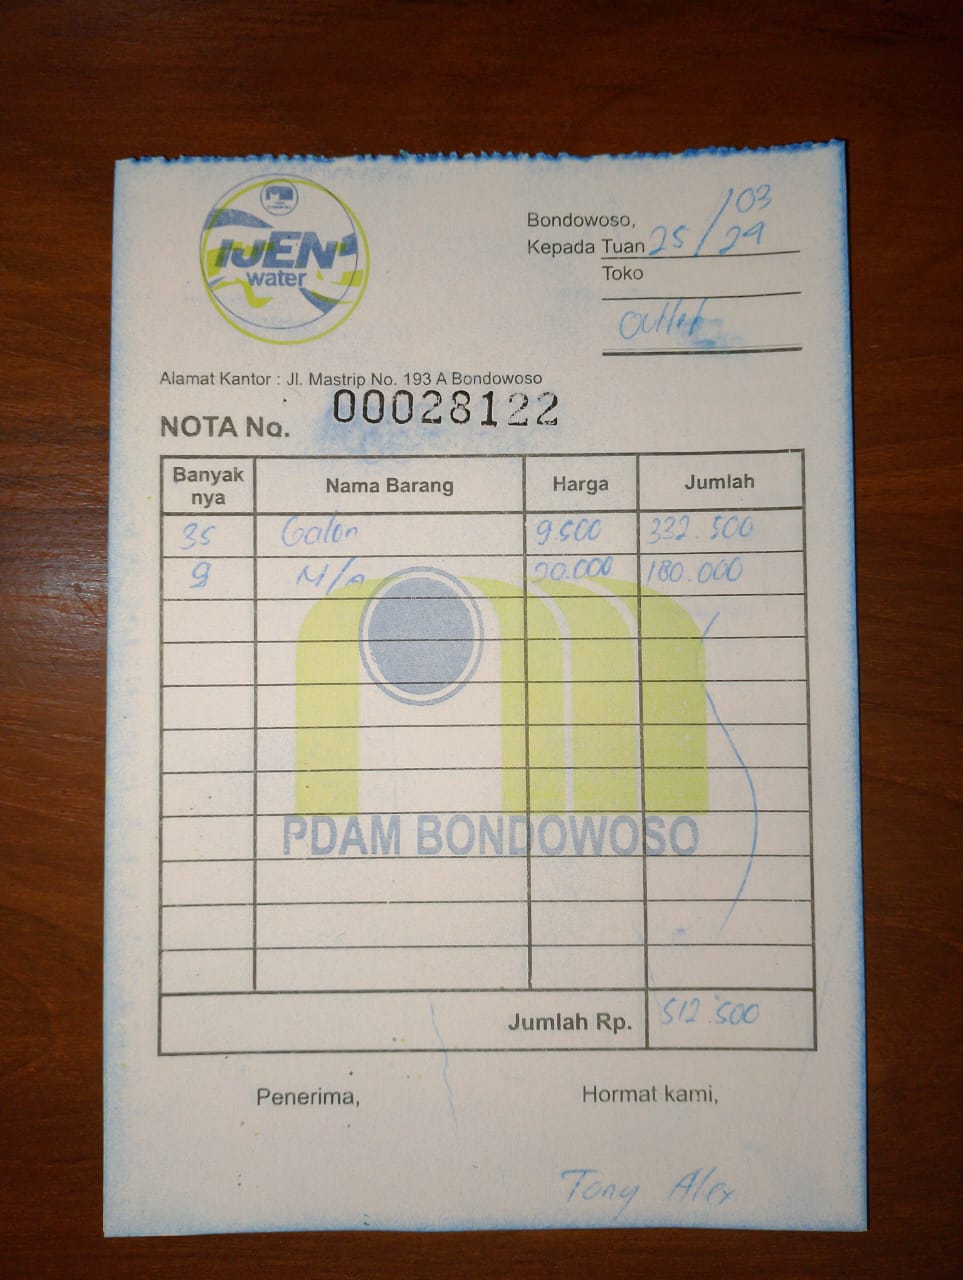 IJEN
water
Bondowoso, 25/03/24
Kepada Tuan
Toko
Outlet
Alamat Kantor : Jl. Mastrip No. 193 A Bondowoso
NOTA No. 00028122
Banyak nya Nama Barang Harga Jumlah
35 Galon 9.500 332.500
9 M/a 20.000 180.000
PDAM BONDOWOSO
Jumlah Rp. 512.500
Penerima, Hormat kami,
Tony Alex